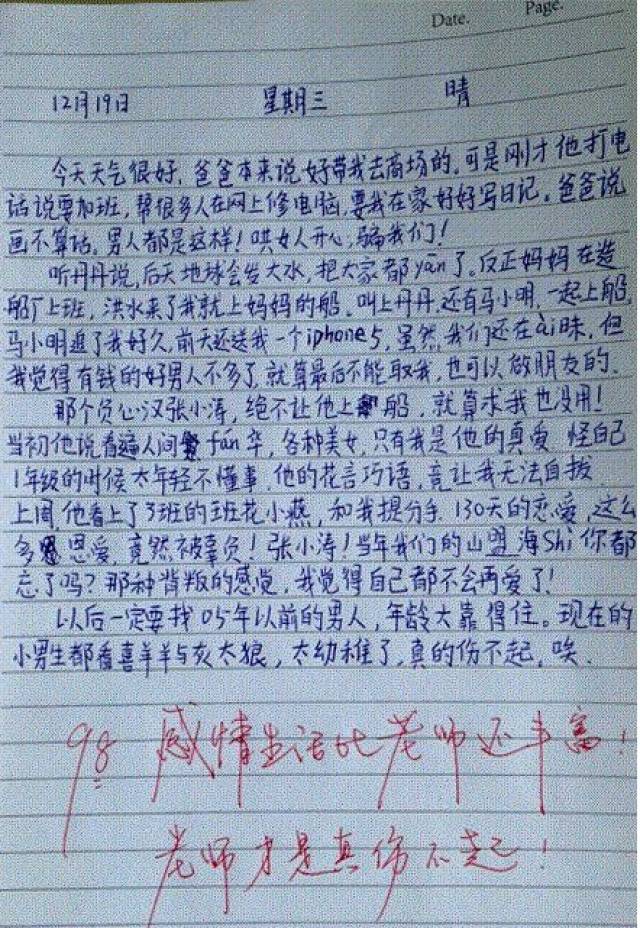 Date. Page.
12月19日 星期三 晴
今天天气很好,爸爸本来说好带我去商场的,可是刚才他打电
话说要加班,帮很多人在网上修电脑,要我在家好好写日记。爸爸说
画不算话,男人都是这样!哄女人开心,骗我们!
听丹丹说,后天地球会发大水,把大家都yān了。反正妈妈在造
船厂上班,洪水来了我就上妈妈的船,叫上丹丹,还有马小明,一起上船,
马小明追了我好久,前天还送我一个iphone5,虽然我们还在ài昧,但
我觉得有钱的好男人不多了,就算最后不能取我,也可以做朋友的。
那个负心汉张小涛,绝不让他上船,就算求我也没用!
当初他说看遍人间fán华,各种美女,只有我是他的真爱,怪自己
1年级的时候太年轻不懂事,他的花言巧语,竟让我无法自拔
上周,他看上了3班的班花小燕,和我提分手,130天的恋爱,这么
多恩爱,竟然被辜负!张小涛!当年我们的山盟海Shi你都
忘了吗?那种背叛的感觉,我觉得自己都不会再爱了!
以后一定要找05年以前的男人,年龄大靠得住。现在的
小男生都看喜羊羊与灰太狼,太幼稚了,真的伤不起,唉.
98 感情生活比老师还丰富!
老师才是真伤不起!